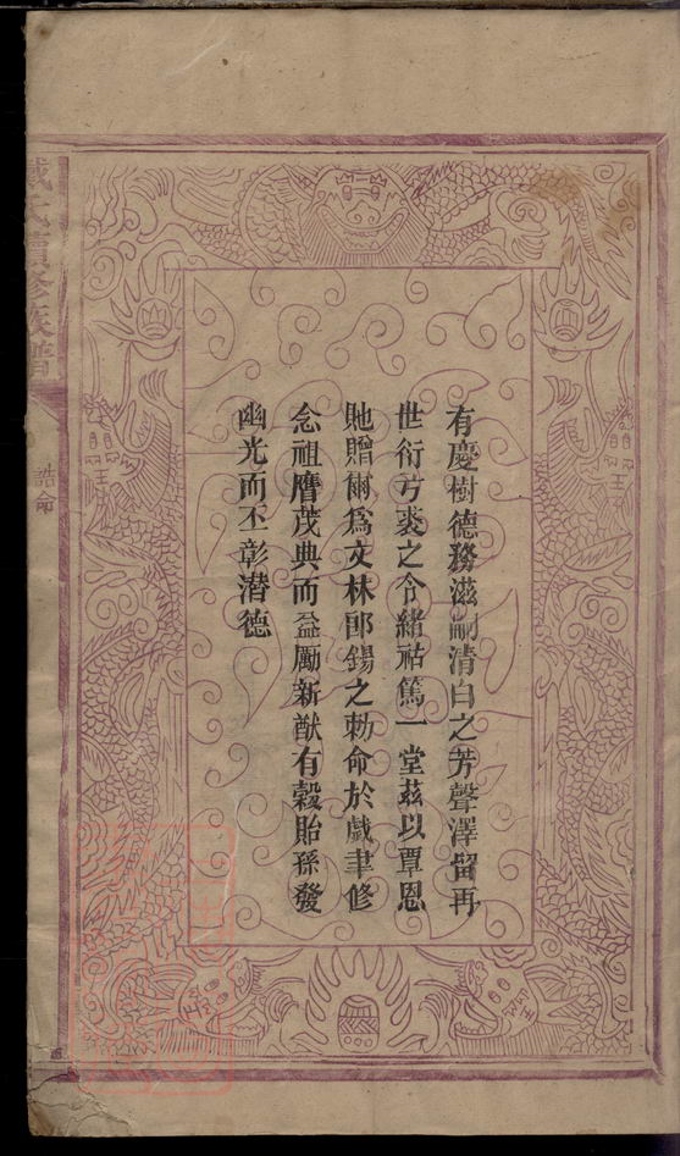 有慶樹德務滋嗣清白之芳聲澤留再
世衍弓裘之令緒祜篤一堂茲以覃恩
貤贈爾爲文林郎錫之勅命於戲聿修
念祖膺茂典而益勵新猷有穀貽孫發
幽光而丕彰潛德
戴氏續修族譜
誥命